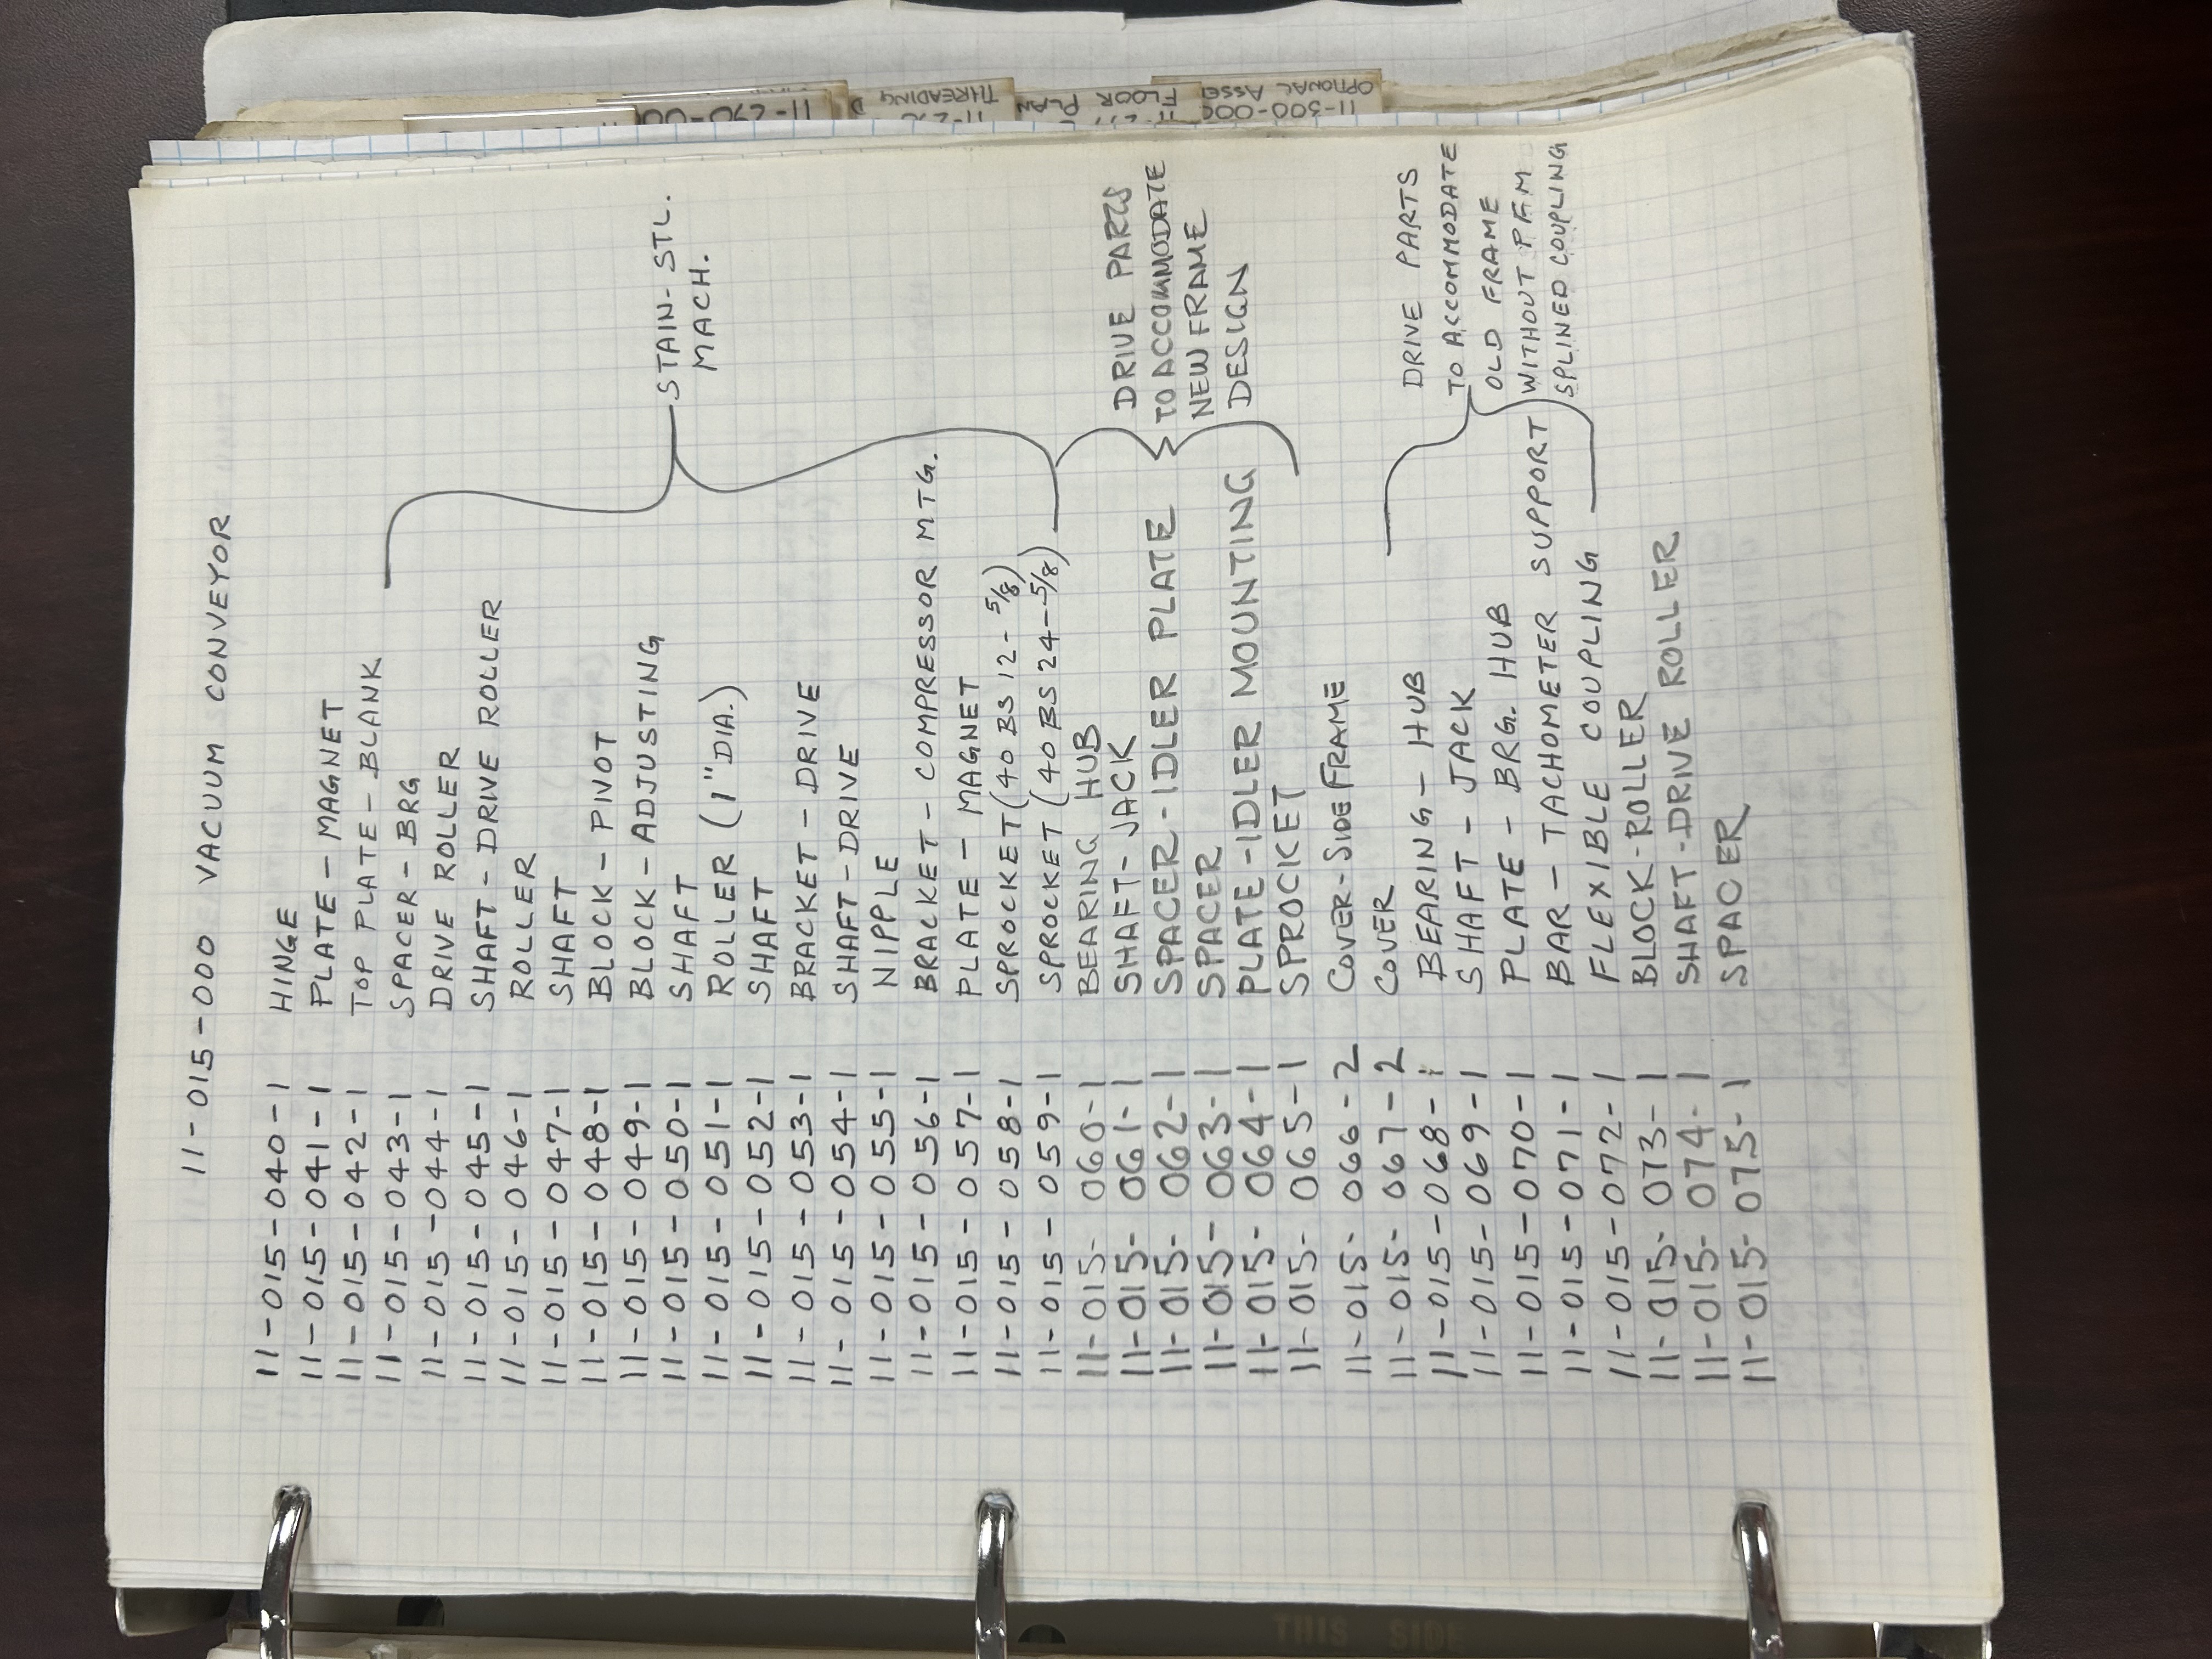 11-015-000 VACUUM CONVEYOR
11-015-040-1 HINGE
11-015-041-1 PLATE - MAGNET
11-015-042-1 TOP PLATE - BLANK
11-015-043-1 SPACER - BRG
11-015-044-1 DRIVE ROLLER
11-015-045-1 SHAFT - DRIVE ROLLER
11-015-046-1 ROLLER
11-015-047-1 SHAFT
11-015-048-1 BLOCK - PIVOT
11-015-049-1 BLOCK - ADJUSTING
11-015-050-1 SHAFT
11-015-051-1 ROLLER (1" DIA.)
11-015-052-1 SHAFT
11-015-053-1 BRACKET - DRIVE
11-015-054-1 SHAFT - DRIVE
11-015-055-1 NIPPLE
11-015-056-1 BRACKET - COMPRESSOR MTG.
11-015-057-1 PLATE - MAGNET
11-015-058-1 SPROCKET (40 BS 12 - 5/8)
11-015-059-1 SPROCKET (40 BS 24 - 5/8)
STAIN - STL.
MACH.
11-015-060-1 BEARING HUB
11-015-061-1 SHAFT - JACK
11-015-062-1 SPACER - IDLER PLATE
11-015-063-1 SPACER
11-015-064-1 PLATE - IDLER MOUNTING
11-015-065-1 SPROCKET
DRIVE PARTS
TO ACCOMMODATE
NEW FRAME
DESIGN
11-015-066-2 COVER - SIDE FRAME
11-015-067-2 COVER
11-015-068-1 BEARING - HUB
11-015-069-1 SHAFT - JACK
11-015-070-1 PLATE - BRG. HUB
11-015-071-1 BAR - TACHOMETER SUPPORT
11-015-072-1 FLEXIBLE COUPLING
DRIVE PARTS
TO ACCOMMODATE
OLD FRAME
WITHOUT PFM
SPLINED COUPLING
11-015-073-1 BLOCK - ROLLER
11-015-074-1 SHAFT - DRIVE ROLLER
11-015-075-1 SPACER
THREADING
FLOOR PLAN
11-300-000
OPTIONAL ASSEI
THIS SIDE